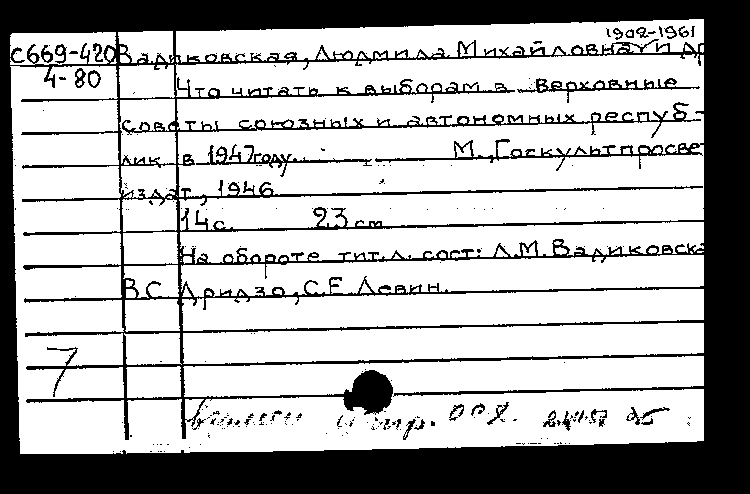 1902-1961
С669-420 Вадиковская, Людмила Михайловна и др
4-80
Что читать к выборам в Верховные
советы союзных и автономных респуб-
лик в 1947 году. М., Госкультпросве
издат, 1946
14 с. 23 см
На обороте тит. л. сост: Л.М. Вадиковска
В.С Дридзо, С.Е Левин.
7
стр.